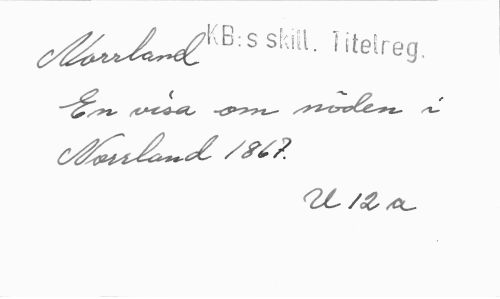 Norrland KB:s skill. Titelreg.
En visa om nöden i
Norrland 1867.
U 12 a